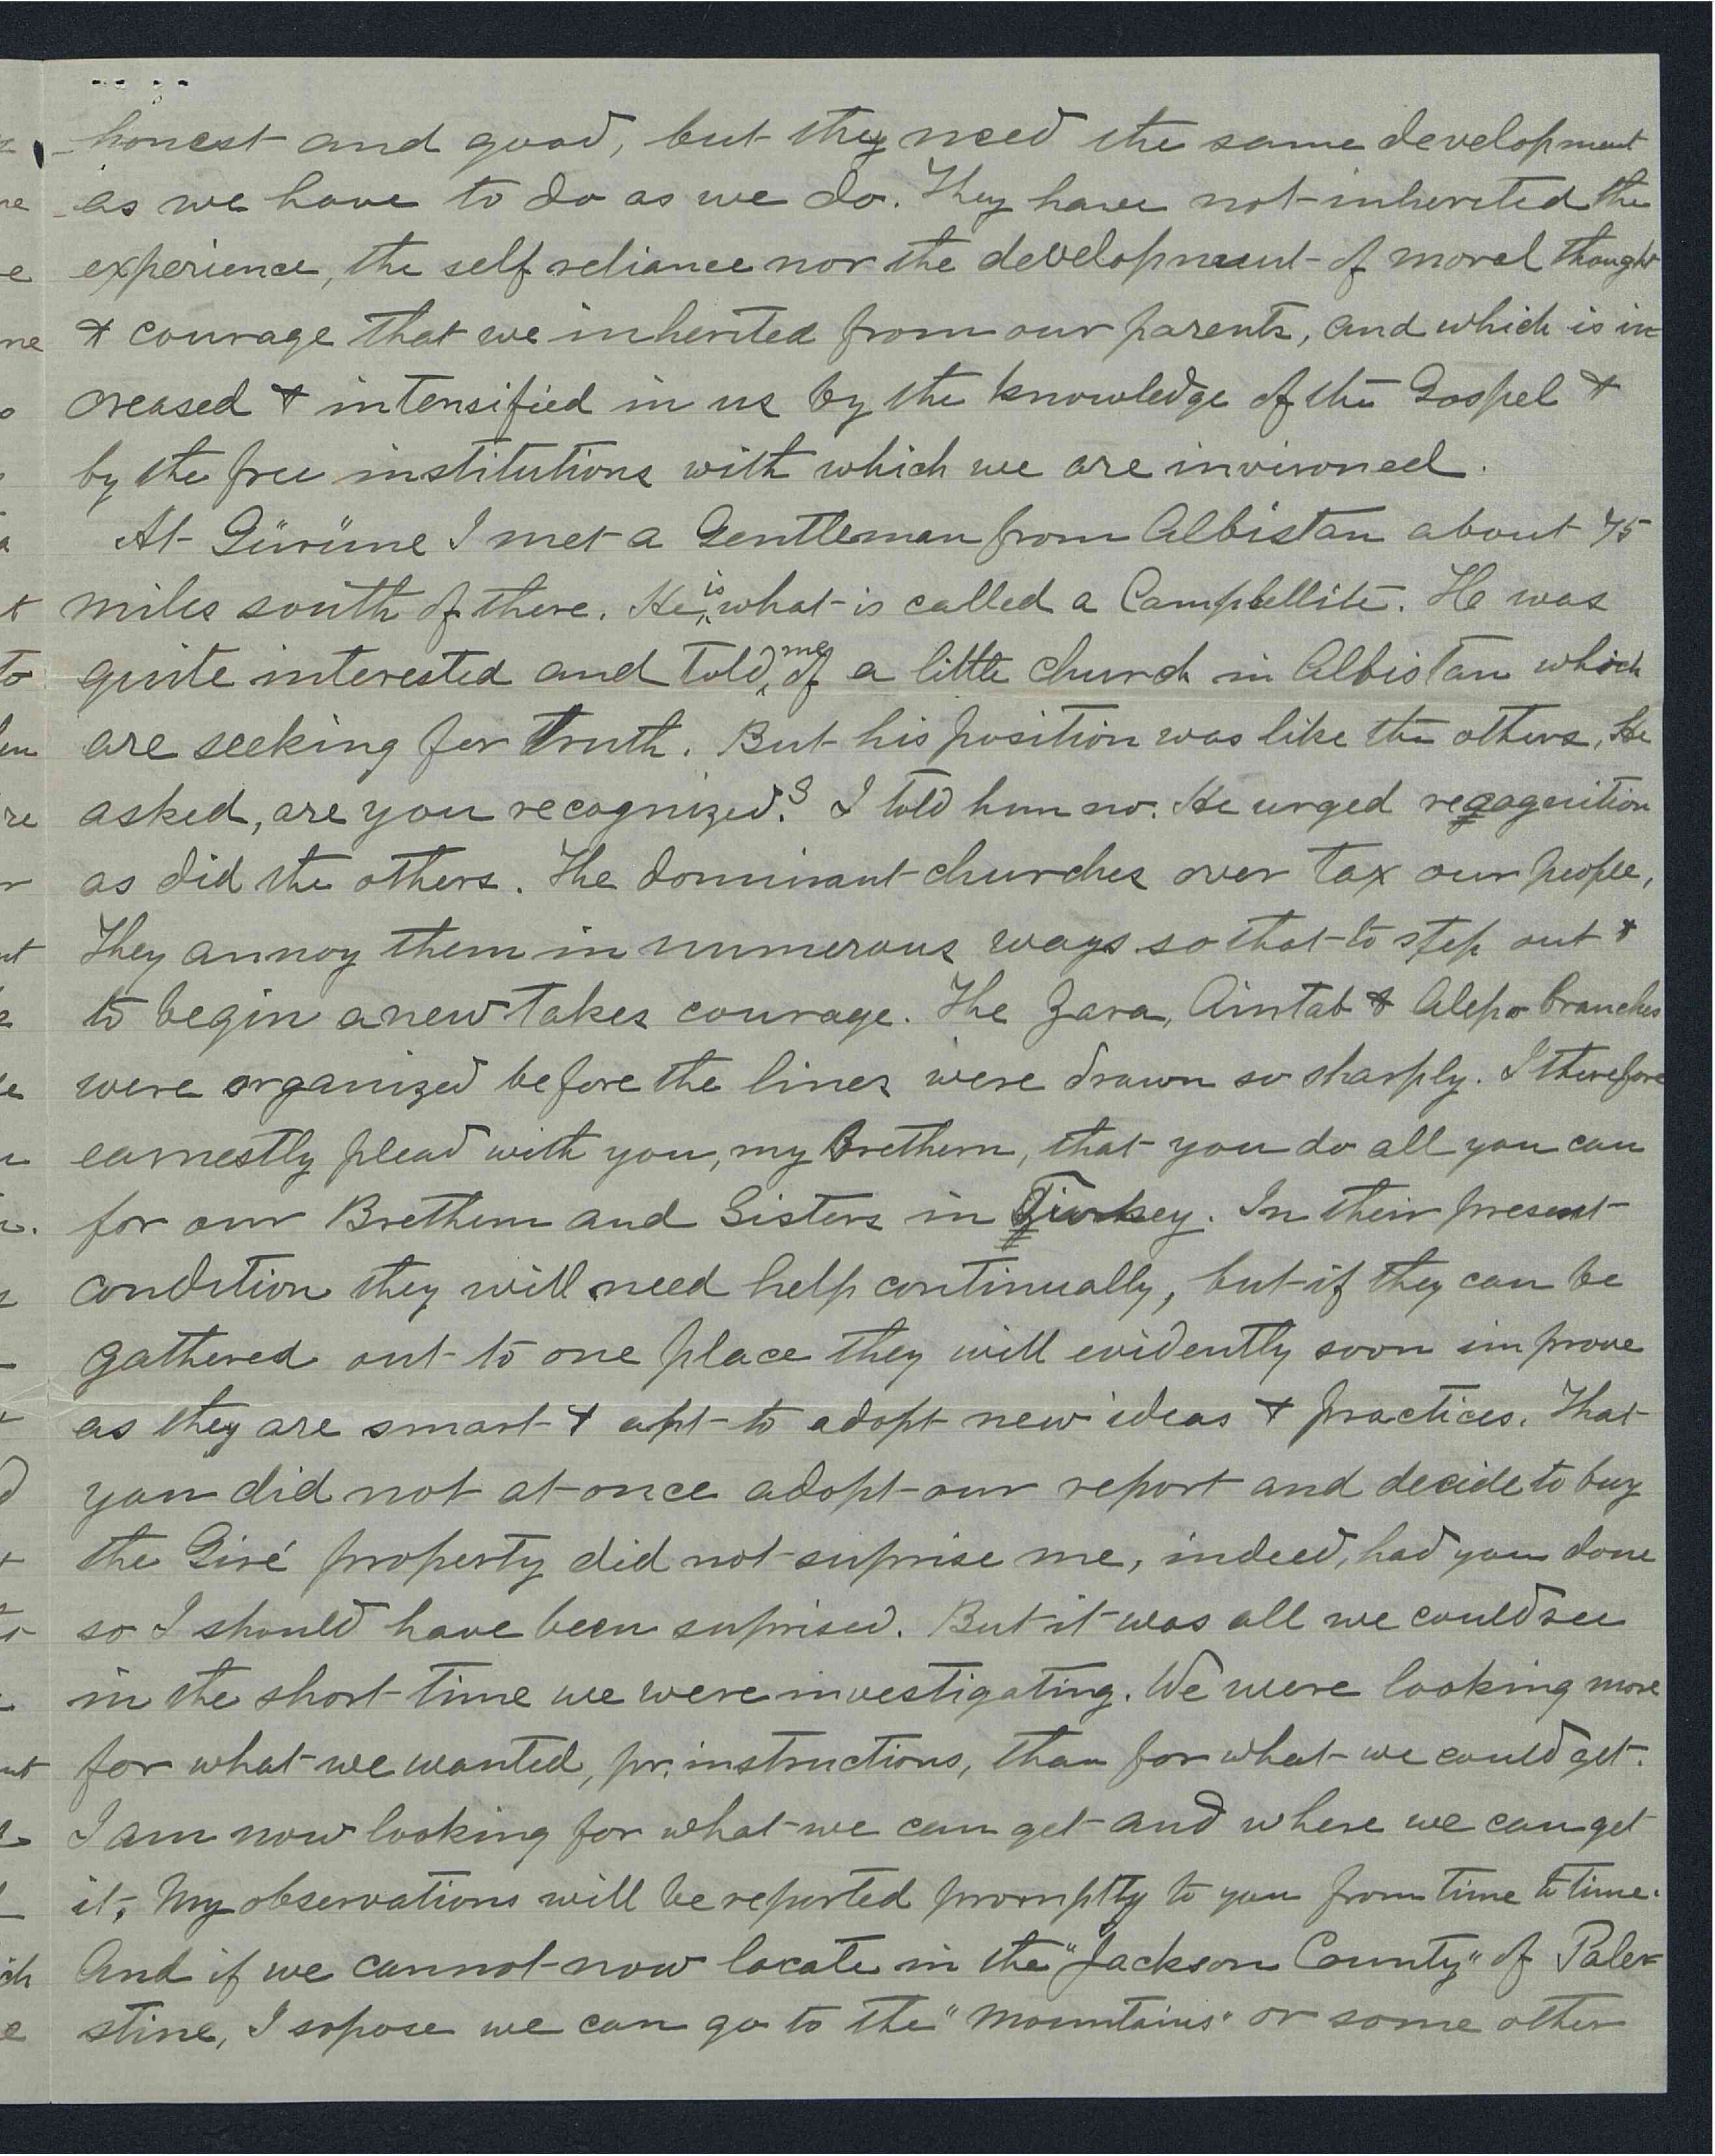 honest and good, but they need the same development
as we have to do as we do. They have not inherited the
experience, the self reliance nor the development of moral thought
& courage that we inherited from our parents, and which is in
creased & intensified in us by the knowledge of the Gospel &
by the free institutions with which we are invironed.
At Gürüne I met a Gentleman from Albistan about 75
miles south of there. He is what is called a Campbellite. He was
quite interested and told me of a little church in Albistan which
are seeking for truth. But his position was like the others, He
asked, are you recognized? I told him no. He urged recognition
as did the others. The dominant churches over tax our people,
They annoy them in numerous ways so that to step out &
to begin anew takes courage. The Zara, Aintab & Alepo branches
were organized before the lines were drawn so sharply. I therefore
earnestly plead with you, my Brethern, that you do all you can
for our Brethern and Sisters in Turkey. In their present
condition they will need help continually, but if they can be
gathered out to one place they will evidently soon improve
as they are smart & apt to adopt new ideas & practices. That
you did not at once adopt our report and decide to buy
the Giré property did not suprise me, indeed, had you done
so I should have been suprised. But it was all we could see
in the short time we were investigating. We were looking more
for what we wanted, pr. instructions, than for what we could get.
I am now looking for what we can get and where we can get
it. My observations will be reported promptly to you from time to time.
And if we cannot now locate in the "Jackson County" of Pale-
stine, I sopose we can go to the "mountains" or some other